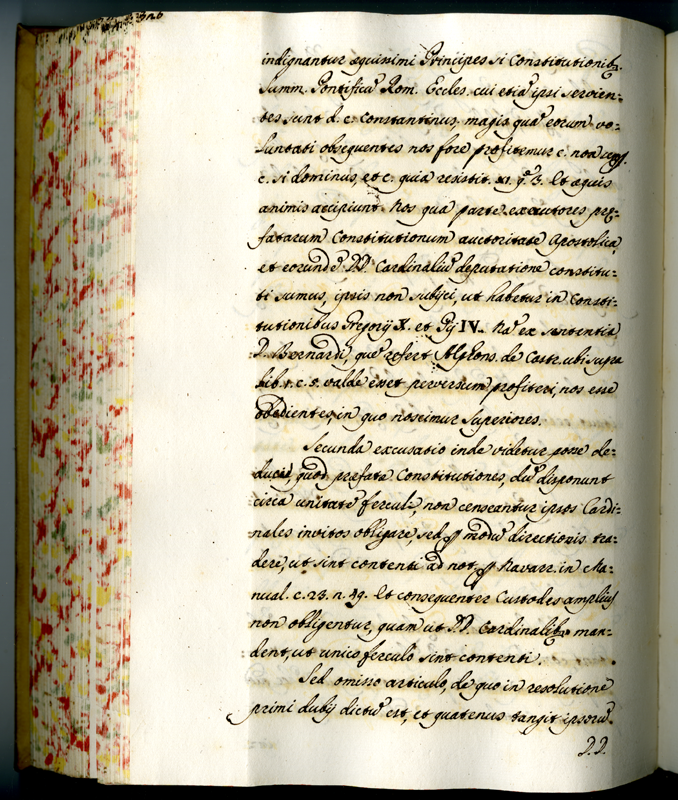 indignantur æquissimi Principes si Constitutionib9.
Summ. Pontificũ Rom. Eccles. cui etiã ipsi servien:
tes sunt d. c. Constantinus. magis quã eorum vo:
luntati obsequentes nos fore profitemur c. non
c. si dominus, et c. quia resistit. XI. q. 3. Et æquis
animis accipiunt. Nos quâ parte executores præ:
fatarum Constitutionum auctoritate Apostolica,
et eorundẽ DD. Cardinaliũ deputatione constitu:
ti sumus, ipsis non subijci, ut habetur in Consti:
tutionibus Gregorij X. et Pij IV. Nã ex sententia
D. Bernardi, quẽ refert Alphons. de Castr. ubi supra
lib. 1. c. 5. valde esset perversum profiteri, nos esse
obedientes, in quo noscimur Superiores.
Secunda excusatio inde videtur posse de:
duci, quod prefatæ Constitutiones, dũ disponunt
circa unitatẽ ferculi, non censeantur ipsos Cardi:
nales invitos obligare, sed p modũ directionis tra:
dere, ut sint contenti ad not. p Navarr. in Ma:
nual. c. 23. n. 49. Et consequenter Custodes amplius
non obligentur, quam ut DD. Cardinalib9 man:
dent, ut unico ferculo sint contenti.
Sed omisso articulo, de quo in resolutione
primi dubij dictũ est, et quatenus tangit ipsorũ
D.D.